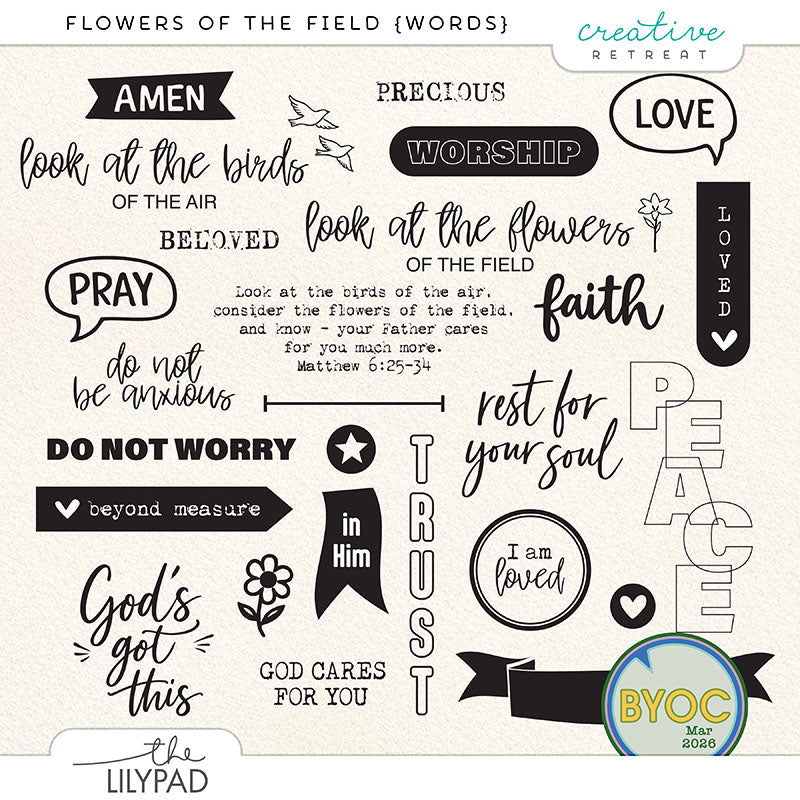 FLOWERS OF THE FIELD {WORDS}
creative
RETREAT
AMEN
PRECIOUS
LOVE
look at the birds
OF THE AIR
WORSHIP
LOVED
BELOVED
look at the flowers
OF THE FIELD
PRAY
Look at the birds of the air,
consider the flowers of the field,
and know - your Father cares
for you much more.
Matthew 6:25-34
faith
do not
be anxious
rest for
your soul
PEACE
DO NOT WORRY
TRUST
beyond measure
in
Him
I am
loved
God's
got
this
GOD CARES
FOR YOU
BYOC
Mar
2026
the
LILYPAD